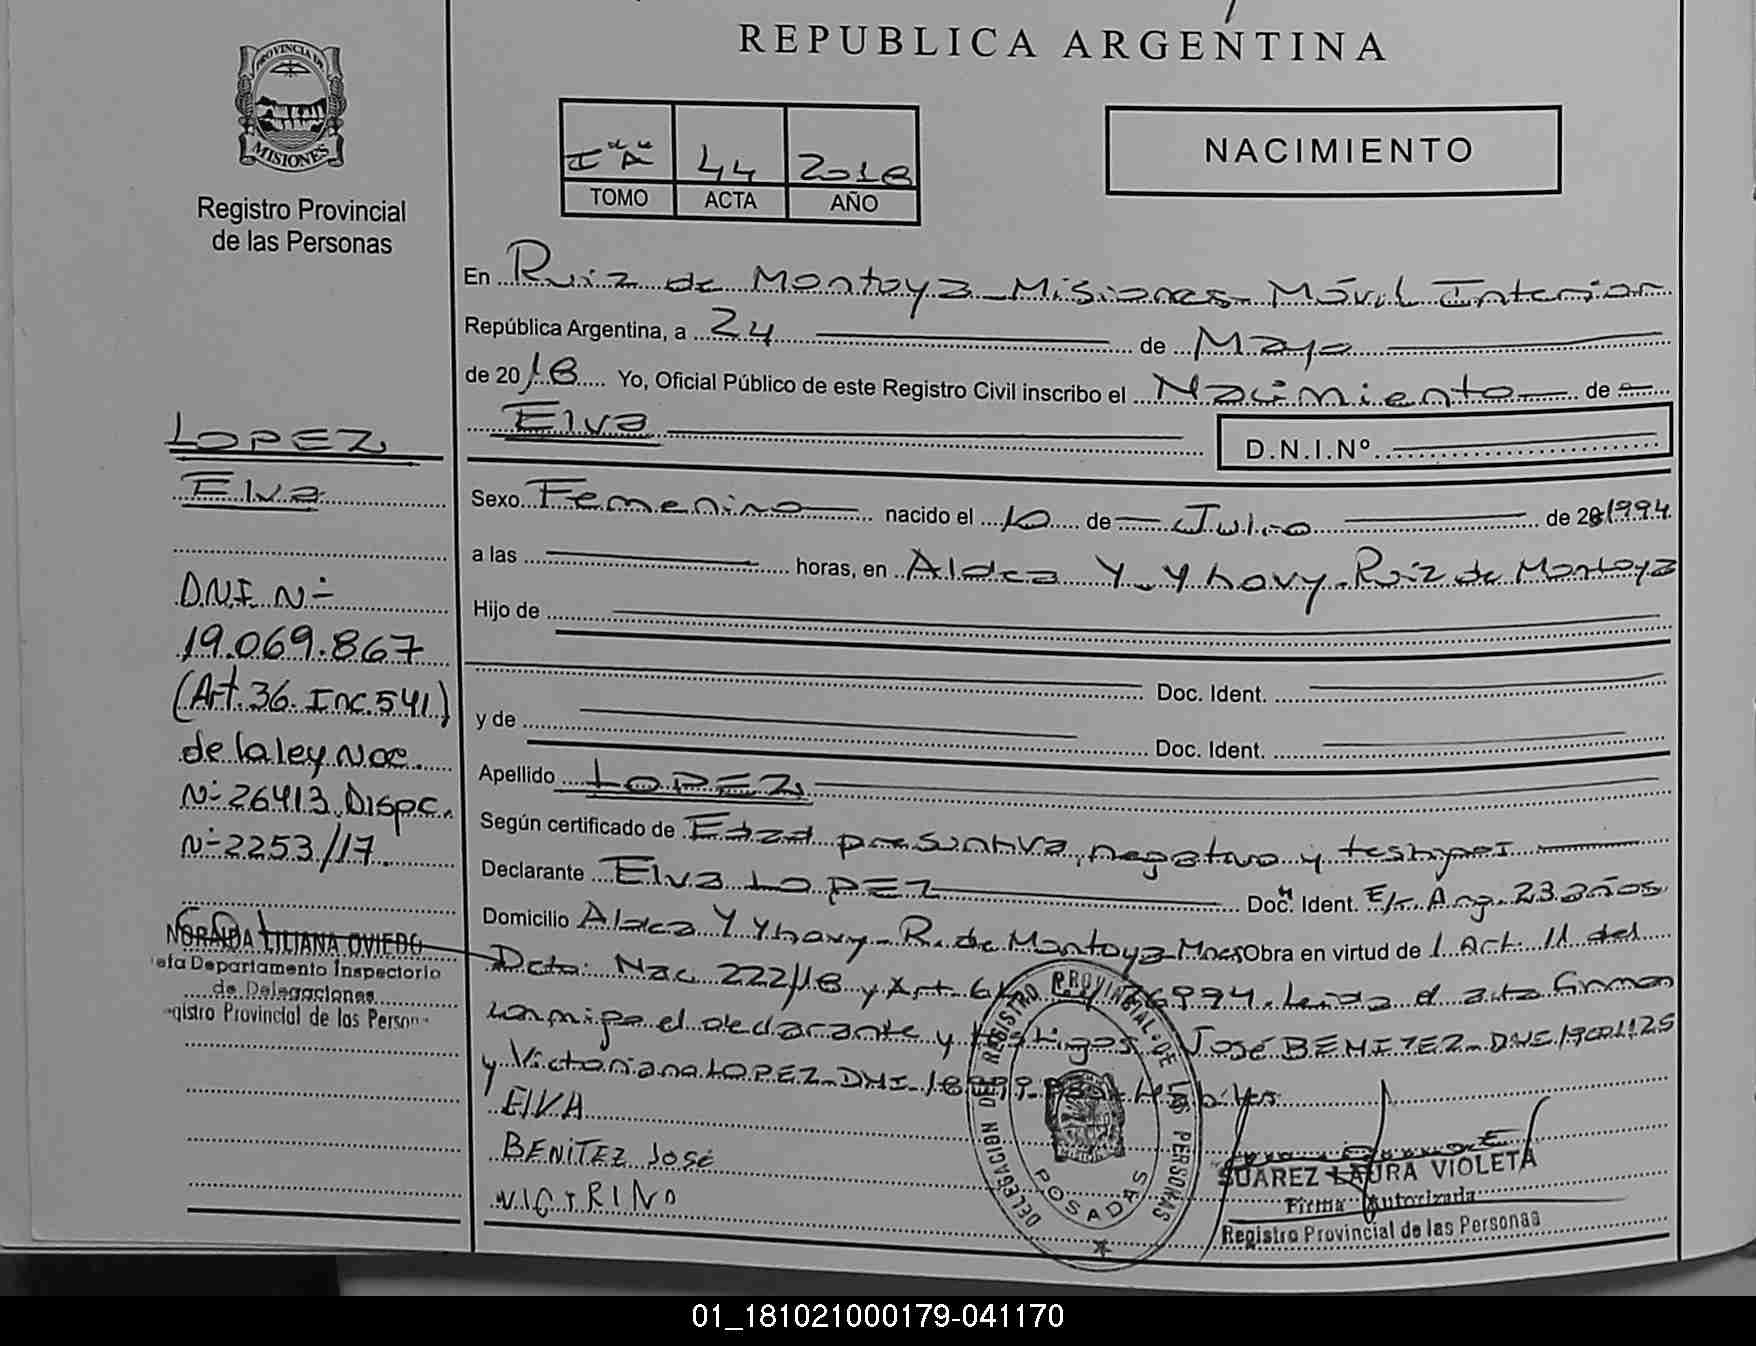 PROVINCIA DE
MISIONES
Registro Provincial
de las Personas
REPUBLICA ARGENTINA
I "A" 44 2018
TOMO ACTA AÑO
NACIMIENTO
En Ruiz de Montoya - Misiones - Móvil Interior
República Argentina, a 24 de Mayo
de 2018 Yo, Oficial Público de este Registro Civil inscribo el Nacimiento de
Elva D.N.I.Nº
Sexo Femenino nacido el 10 de Julio de 1994
a las horas, en Aldea Y. Yhovy. Ruiz de Montoya
Hijo de
Doc. Ident.
y de
Doc. Ident.
Apellido LOPEZ
Según certificado de Edad presuntiva, negativo y
Declarante Elva LOPEZ Doc. Ident. Arg. 23 años
Domicilio Aldea Y Yhovy - R. de Montoya - Obra en virtud de Art. 11 del
Dcto. Nac. 222/18 y Art. 26994. Leida el acta firman
conmigo el declarante y testigos José BENITEZ - DNI
y Victoriana LOPEZ - DNI
ElVA
BENITEZ José
VICTRINO
LOPEZ
Elva
D.N.I. Nº
19.069.867
(Art. 36. Inc. 541)
de la ley Nac.
Nº 26413. Dispc.
Nº 2253/17.
NORAIDA LILIANA OVIEDO
Jefa Departamento Inspectorio
de Delegaciones
Registro Provincial de las Personas
DELEGACION DEL REGISTRO PROVINCIAL DE LAS PERSONAS
POSADAS
SUAREZ LAURA VIOLETA
Firma Autorizada
Registro Provincial de las Personas
01_181021000179-041170